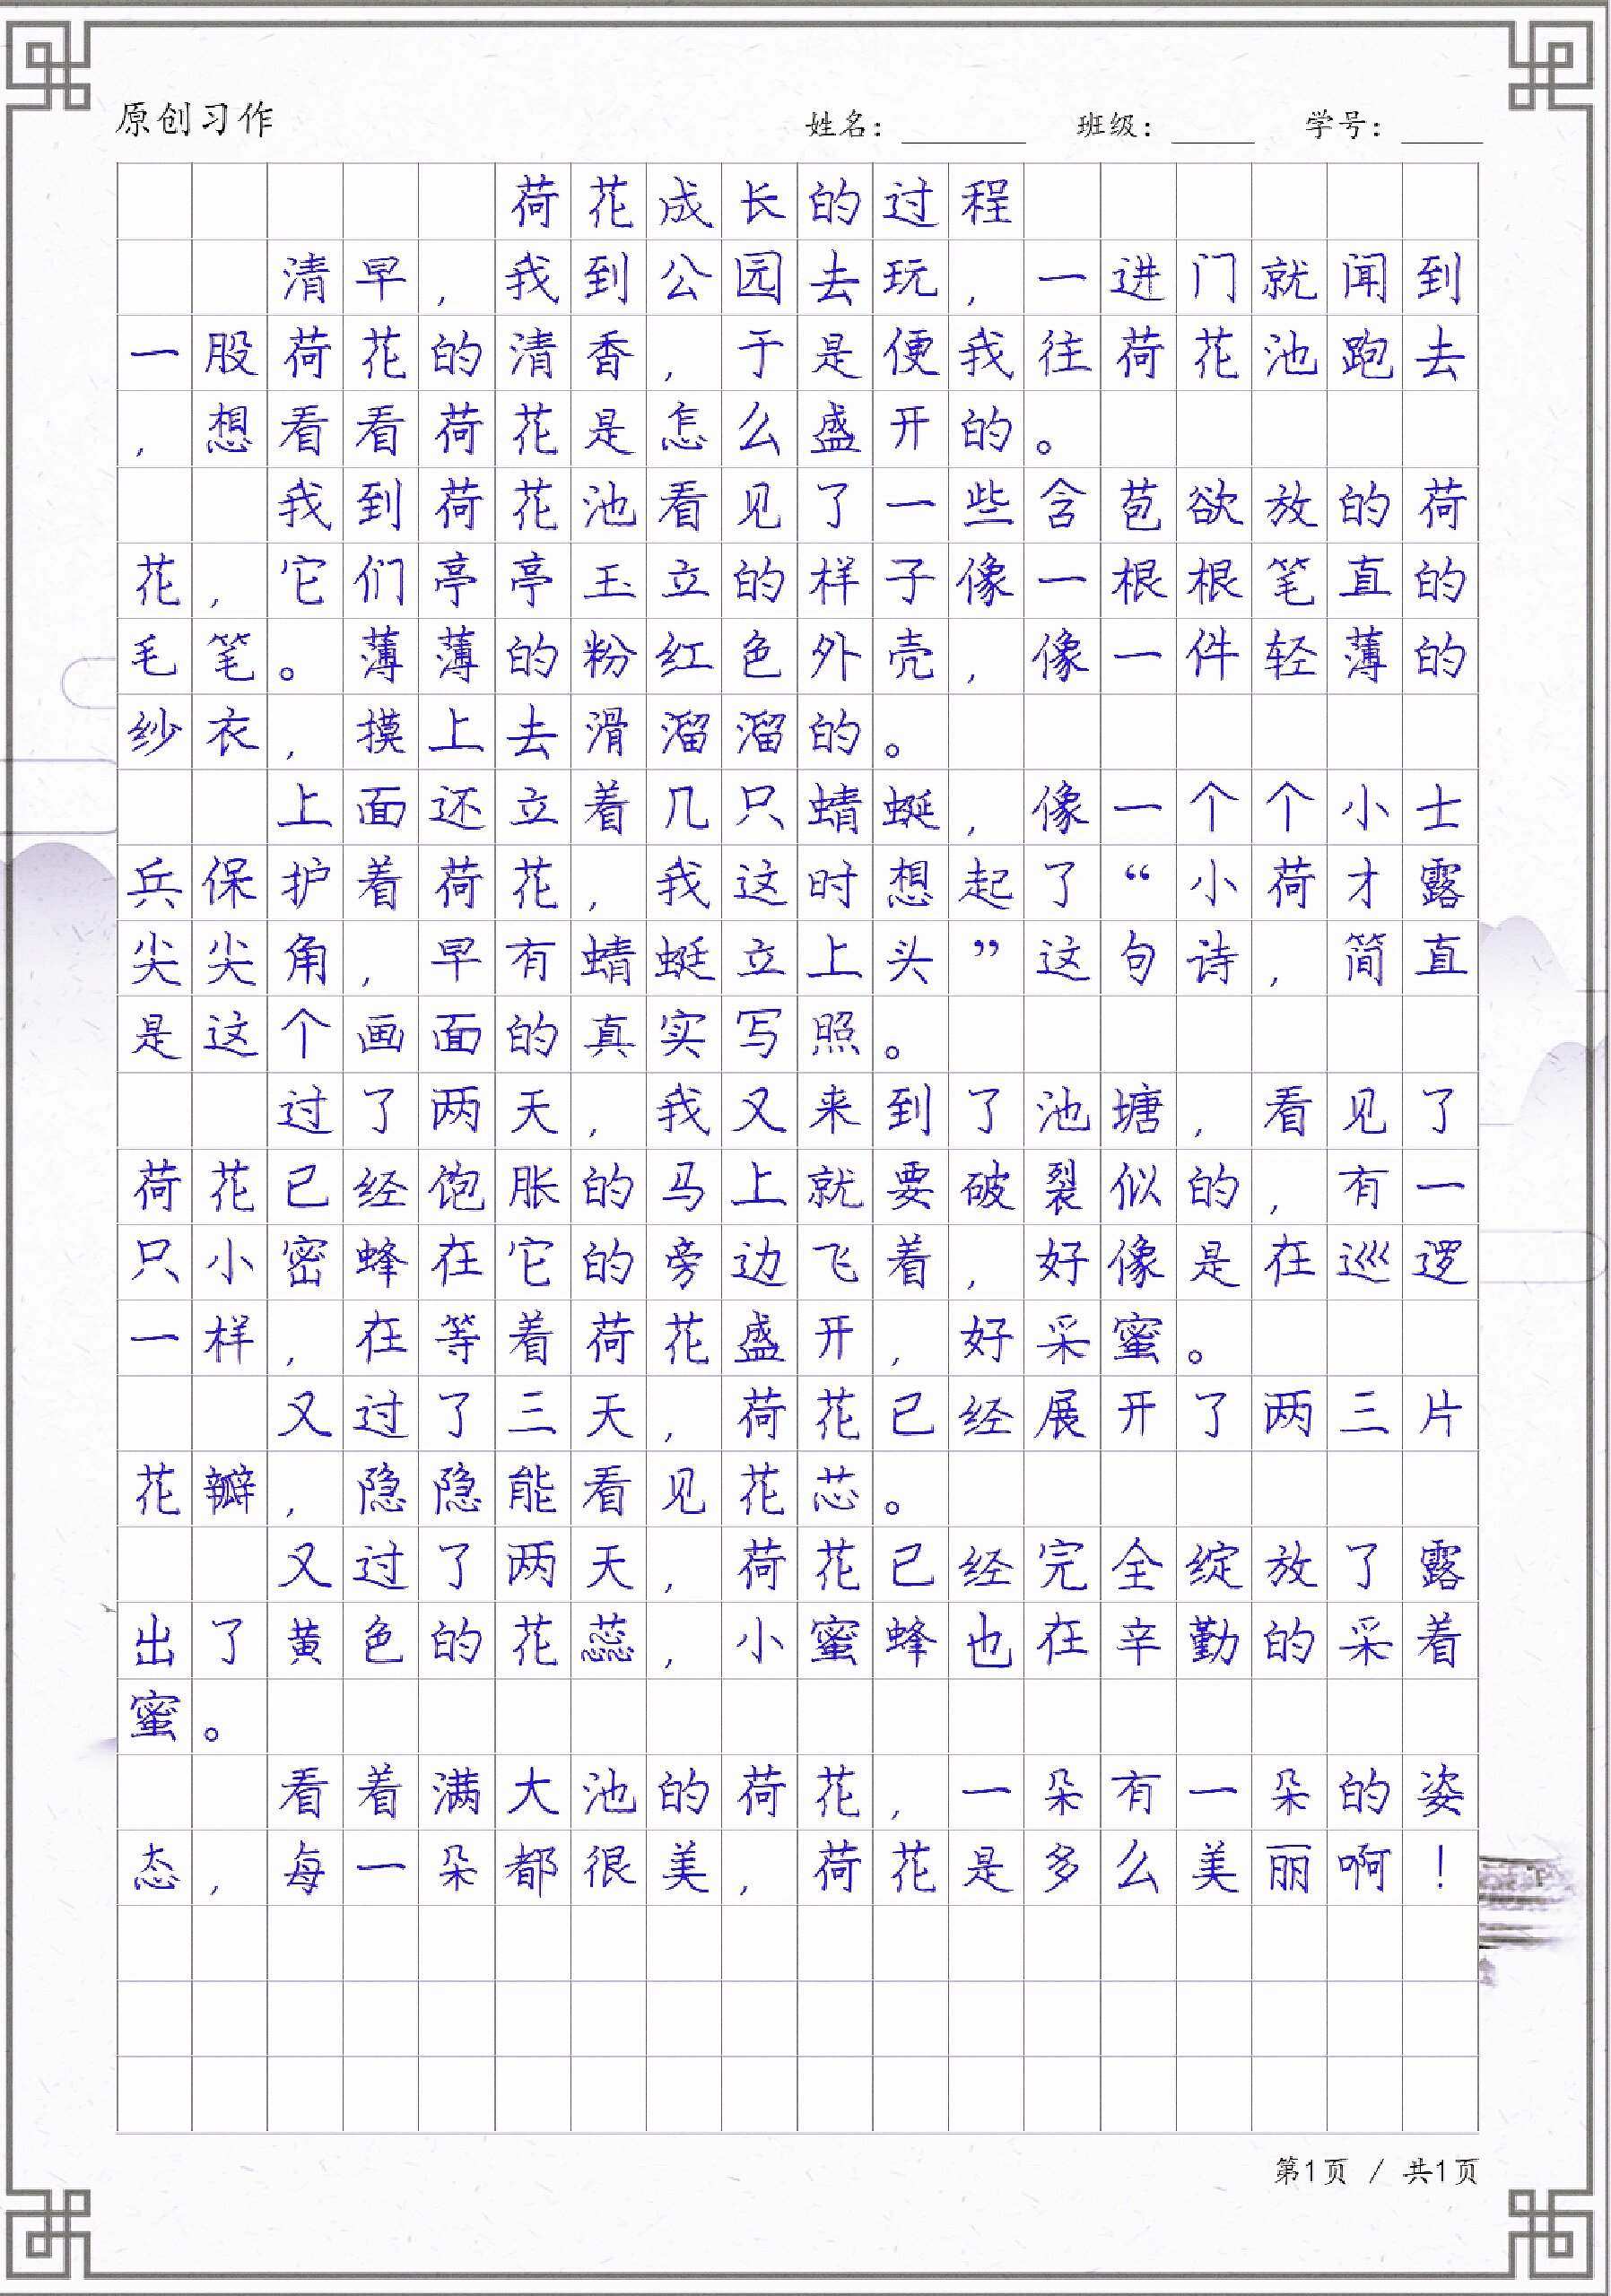 原创习作 姓名： 班级： 学号：
荷花成长的过程
清早，我到公园去玩，一进门就闻到
一股荷花的清香，于是便我往荷花池跑去
，想看看荷花是怎么盛开的。
我到荷花池看见了一些含苞欲放的荷
花，它们亭亭玉立的样子像一根根笔直的
毛笔。薄薄的粉红色外壳，像一件轻薄的
纱衣，摸上去滑溜溜的。
上面还立着几只蜻蜓，像一个个小士
兵保护着荷花，我这时想起了“小荷才露
尖尖角，早有蜻蜓立上头”这句诗，简直
是这个画面的真实写照。
过了两天，我又来到了池塘，看见了
荷花已经饱胀的马上就要破裂似的，有一
只小密蜂在它的旁边飞着，好像是在巡逻
一样，在等着荷花盛开，好采蜜。
又过了三天，荷花已经展开了两三片
花瓣，隐隐能看见花芯。
又过了两天，荷花已经完全绽放了露
出了黄色的花蕊，小蜜蜂也在辛勤的采着
蜜。
看着满大池的荷花，一朵有一朵的姿
态，每一朵都很美，荷花是多么美丽啊！
第1页 / 共1页